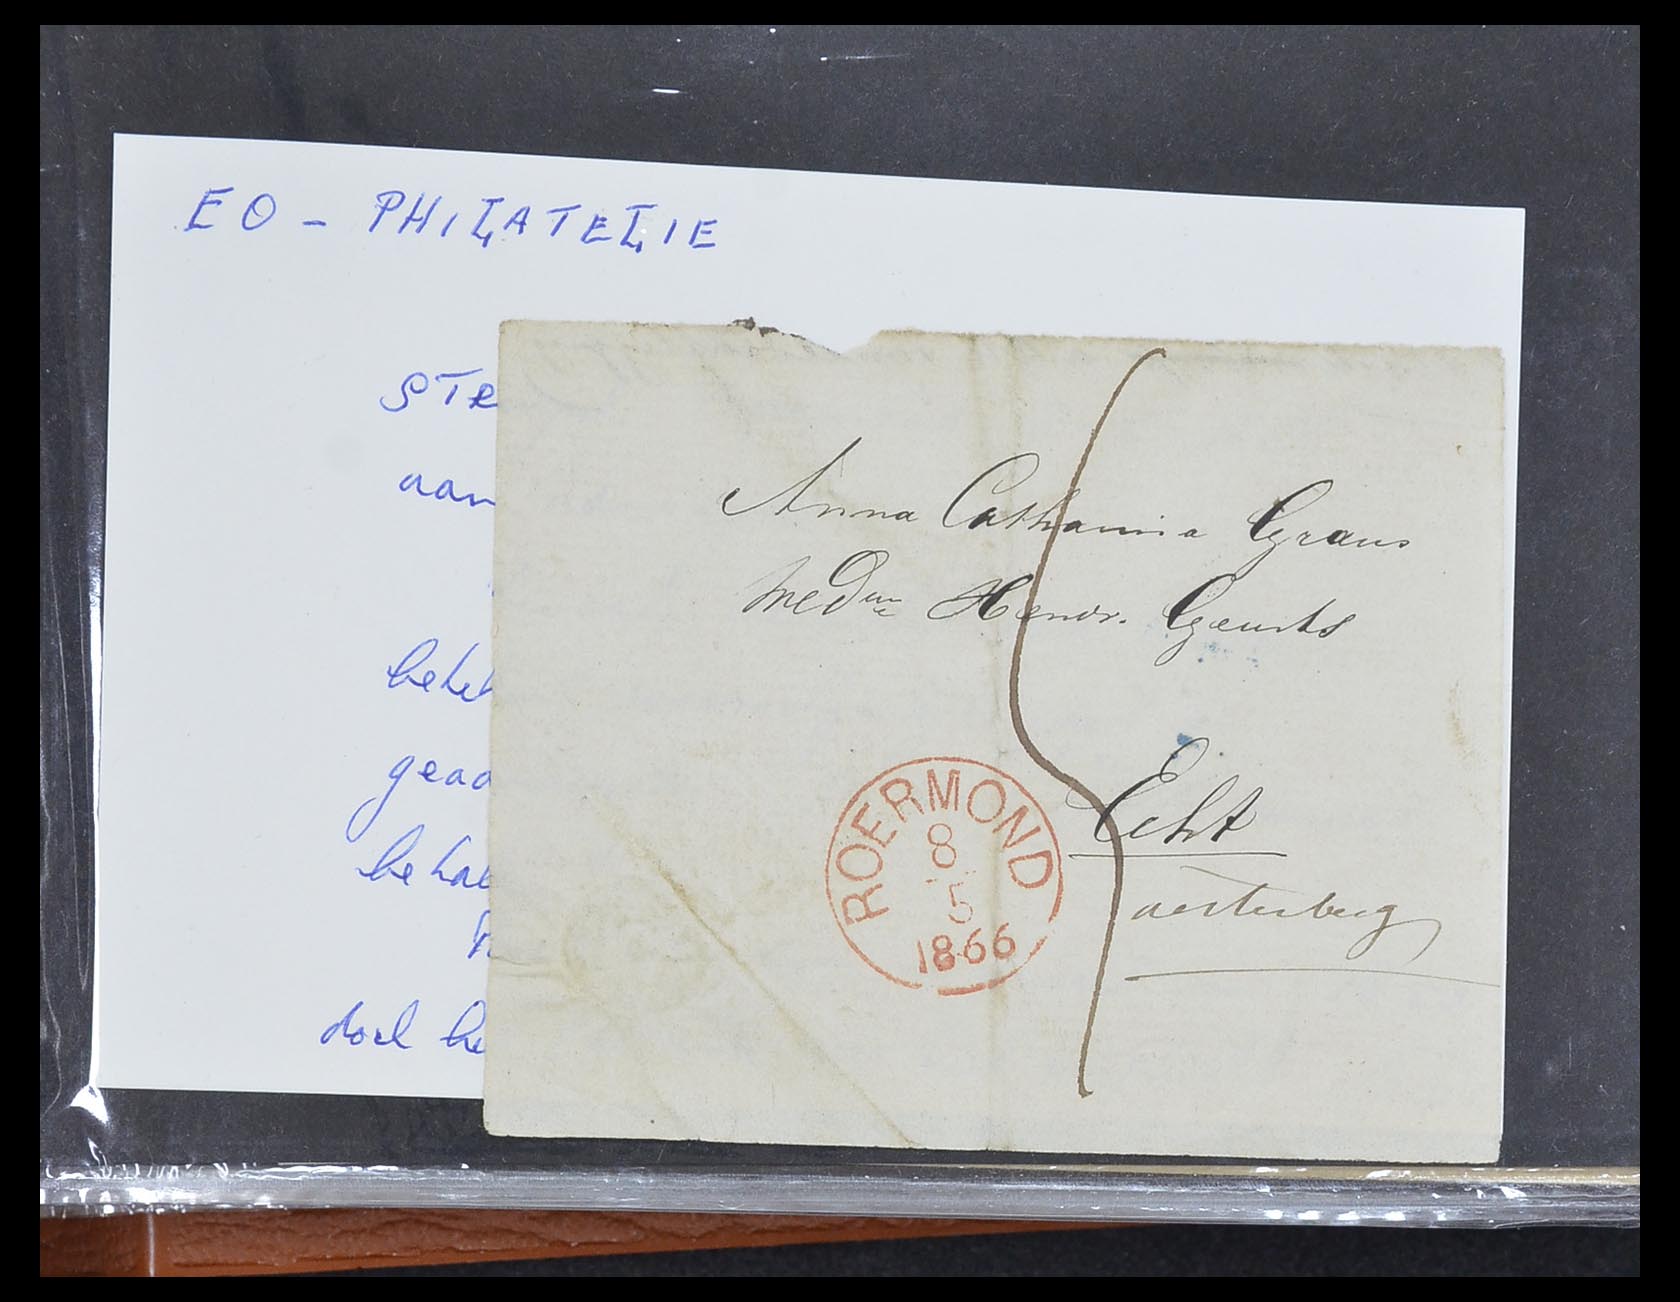 EO - PHILATELIE
STR
aan
behel
gead
behal
doel be
Anna Catharina Graus
Wed^we Hendr. Geurts
Echt
aesterberg
ROERMOND
8
5
1866
5